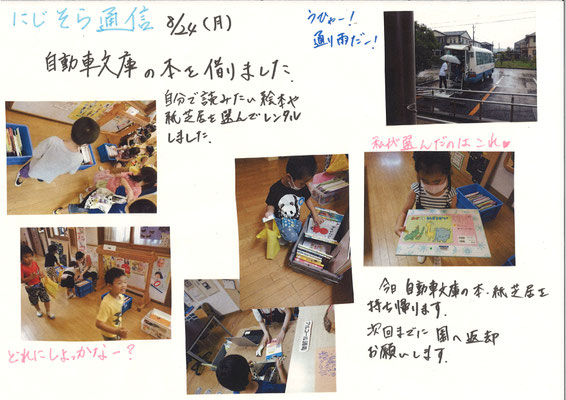 にじそら通信 8/24(月)
自動車文庫の本を借りました.
自分で読みたい絵本や
紙芝居を選んでレンタル
しました.
うひゃー!
通り雨だー!
私が選んだのはこれ♥
どれにしよっかなー?
今日 自動車文庫の本・紙芝居を
持ち帰ります.
次回までに 園へ返却
お願いします.